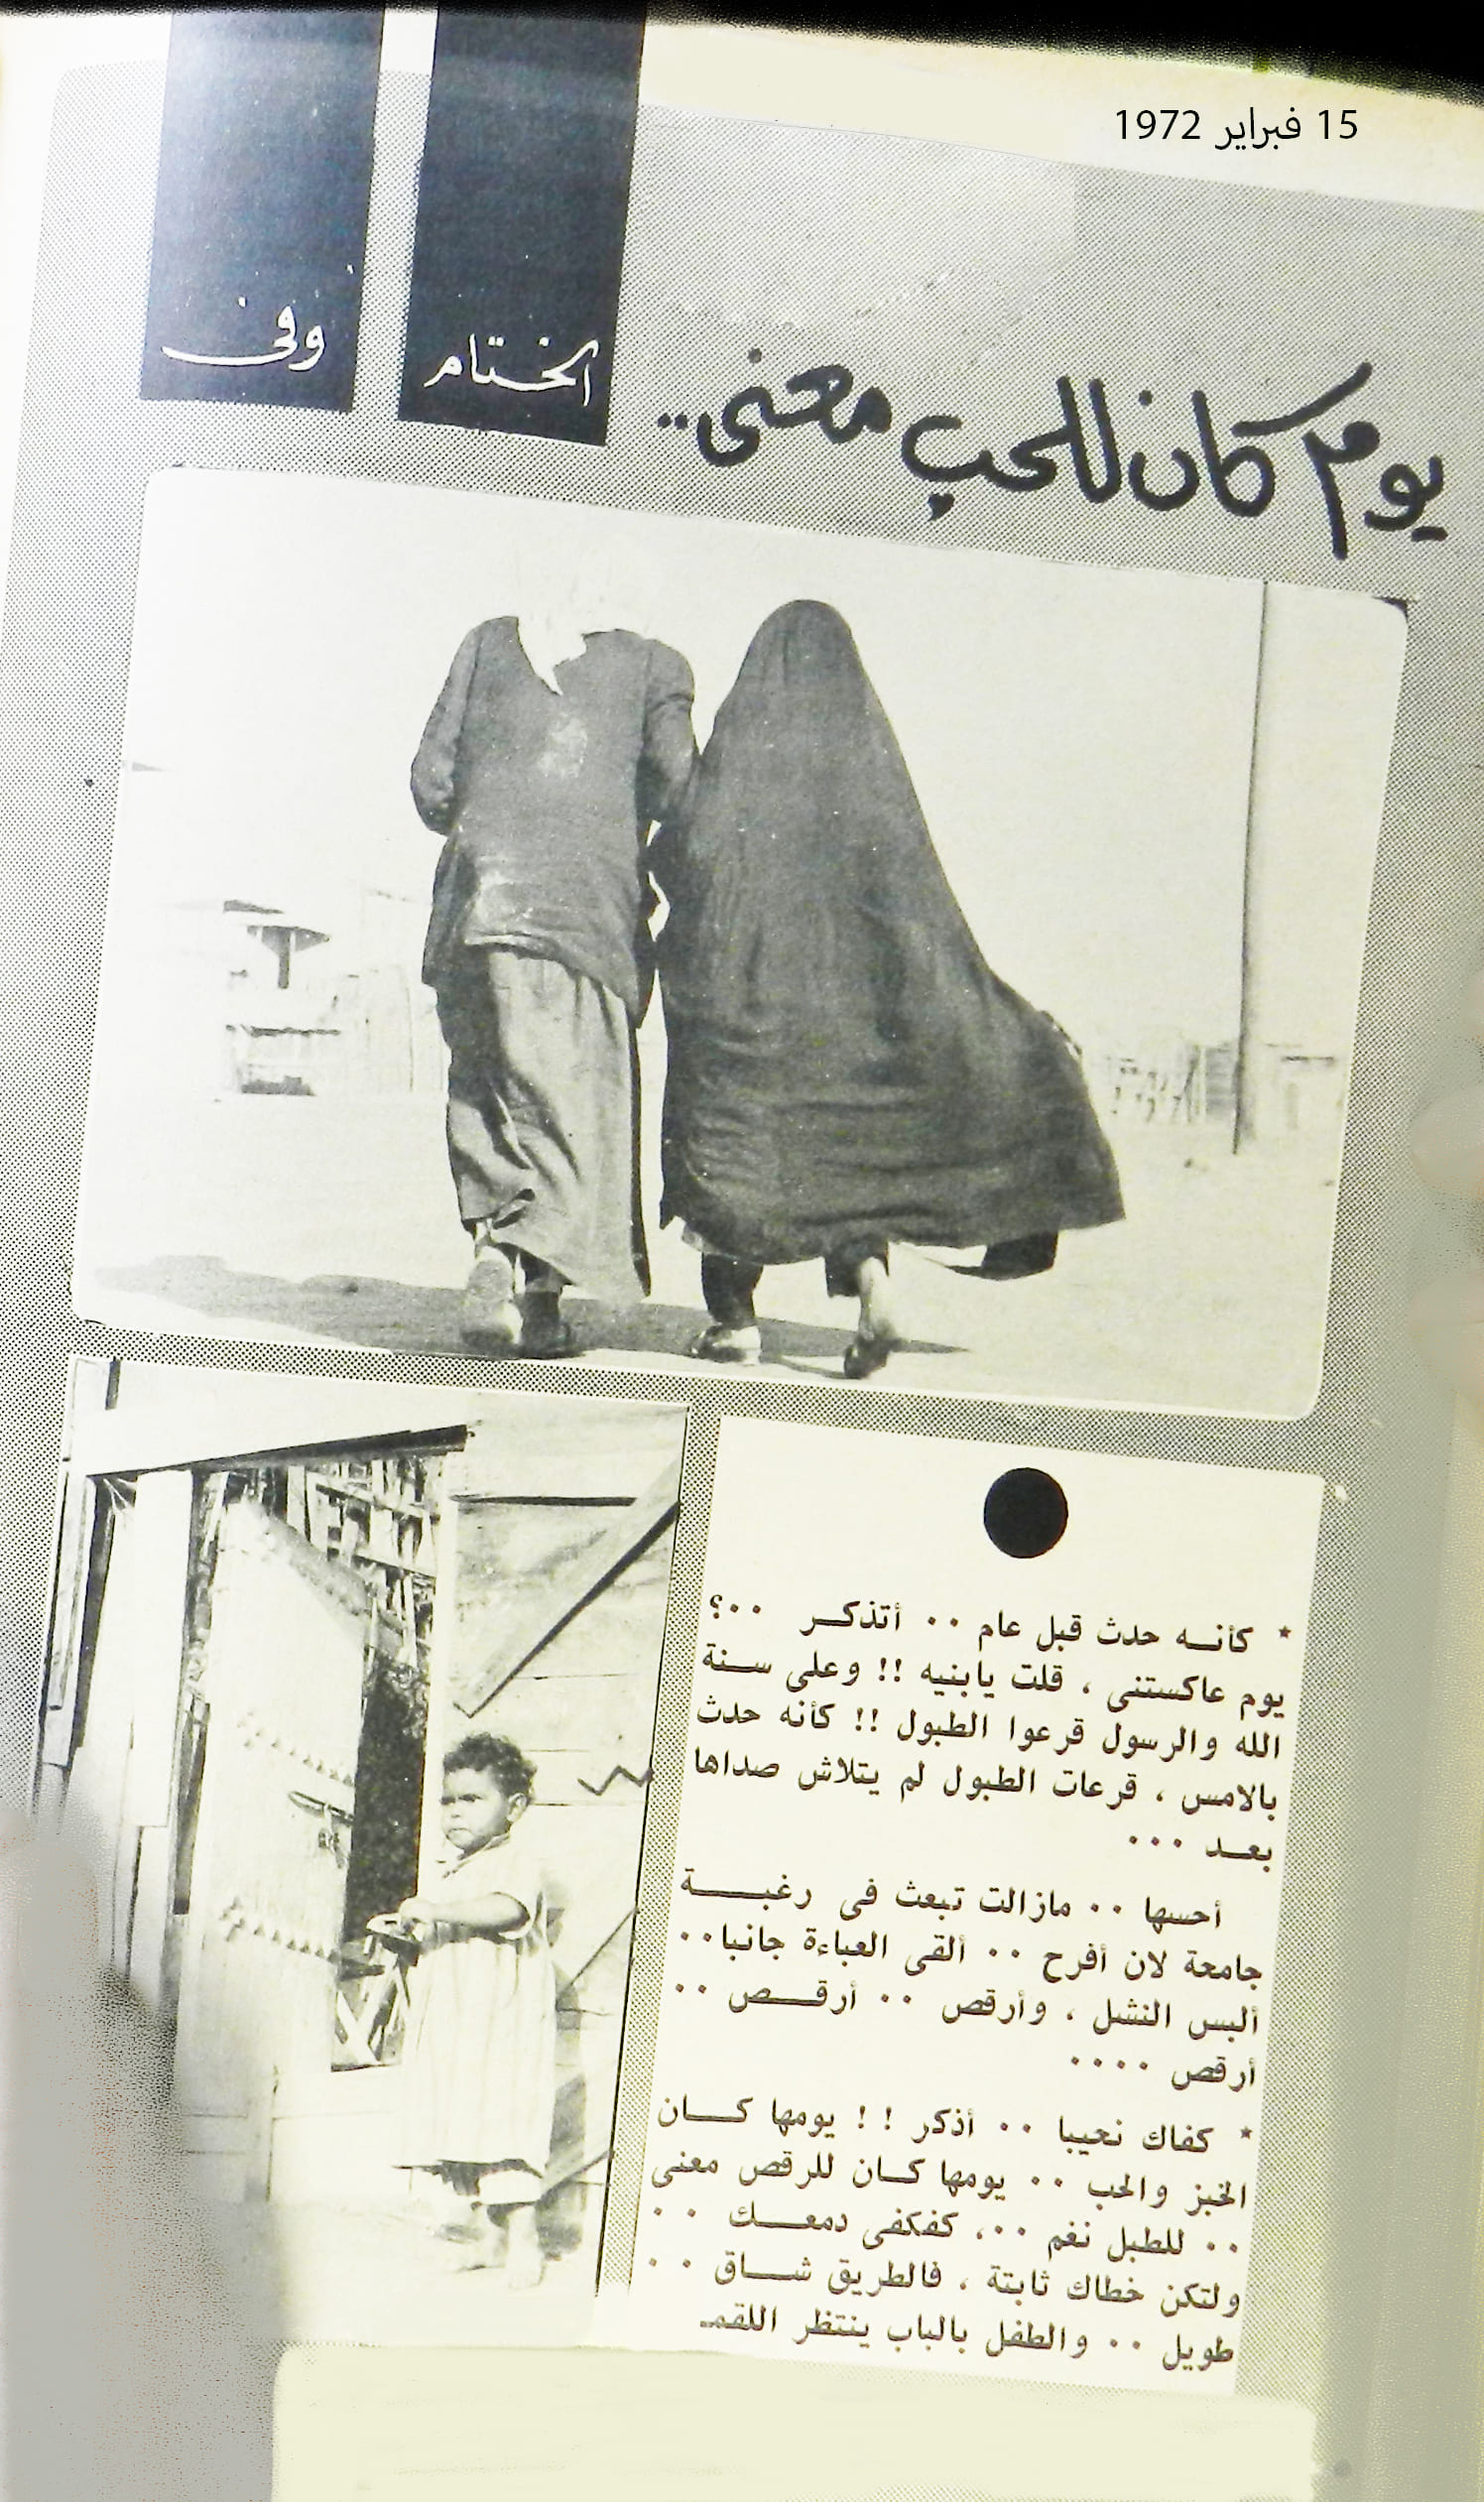 15 فبراير 1972
وفى
الختام
يوم كان للحب معنى..
* كأنـه حدث قبل عام ٠٠ أتذكـر ٠٠؟
يوم عاكستنى ، قلت يابنيه !! وعلى سـنة
الله والرسول قرعوا الطبول !! كأنه حدث
بالامس ، قرعات الطبول لم يتلاش صداها
بعـد ٠٠٠
أحسها ٠٠ مازالت تبعث فى رغبـــة
جامحة لان أفرح ٠٠ ألقى العباءة جانبا٠٠
ألبس النشل ، وأرقص ٠٠ أرقـــص ٠٠
أرقص ٠٠٠٠
* كفاك نحيبا ٠٠ أذكر ! ! يومها كــان
الخبز والحب ٠٠ يومها كـان للرقص معنى
٠٠ للطبل نغم ٠٠، كفكفى دمعــك ٠٠
ولتكن خطاك ثابتة ، فالطريق شــاق ٠٠
طويل ٠٠ والطفل بالباب ينتظر اللقمـ